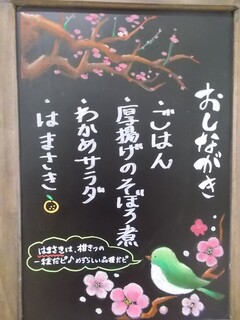 おしながき
・ごはん
・厚揚げのそぼろ煮
・わかめサラダ
・はまさき
はまさきは、柑きつの
一種だピ♪めずらしい品種だピ